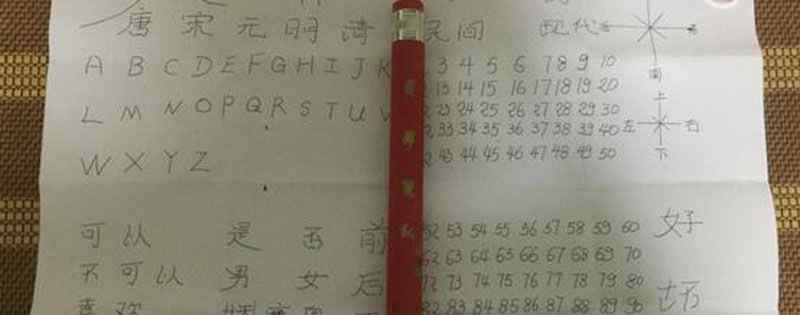 唐 宋 元 明 清 民间 现代
A B C D E F G H I J K 3 4 5 6 7 8 9 10
13 14 15 16 17 18 19 20
南
上
L M N O P Q R S T U V 23 24 25 26 27 28 29 30
33 34 35 36 37 38 39 40 左 右
W X Y Z 43 44 45 46 47 48 49 50 下
可以 是 否 前 52 53 54 55 56 57 58 59 60 好
62 63 64 65 66 67 68 69 70
不可以 男 女 后 72 73 74 75 76 77 78 79 80 坏
喜欢 82 83 84 85 86 87 88 89 90